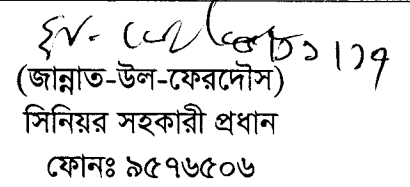 (জান্নাত-উল-ফেরদৌস)
সিনিয়র সহকারী প্রধান
ফোনঃ ৯৫৭৬৫০৬